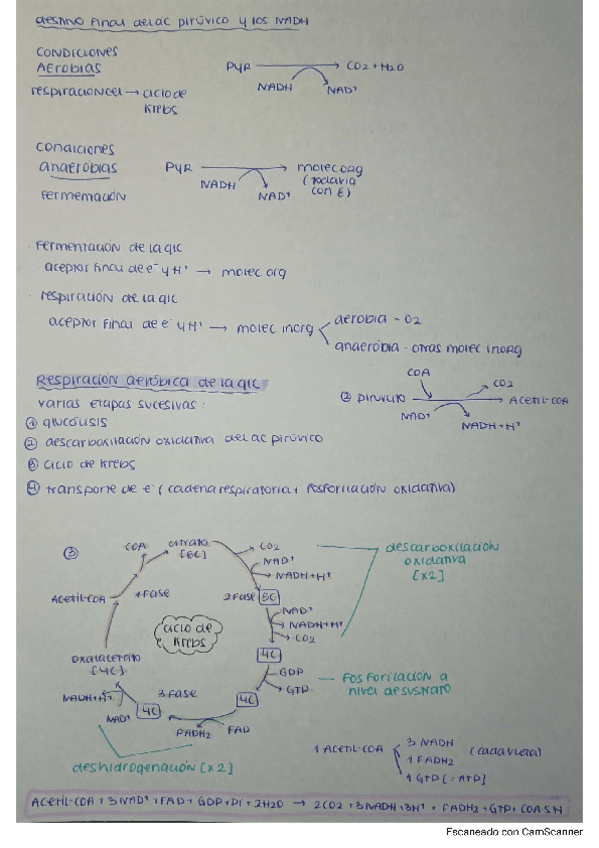 Destino final del ac pirúvico y los NADH
CONDICIONES
AEROBIAS
PYR → CO2 + H2O
NADH
NAD+
respiración cel → ciclo de
Krebs
condiciones
anaerobias
PYR → molec org
(todavía
con E)
NADH
NAD+
Fermentación
· Fermentación de la glc
aceptor final de e- y H+ → molec org
· respiración de la glc
aceptor final de e- y H+ → molec inorg
aerobia - O2
anaerobia - otras molec inorg
Respiración aeróbica de la glc
varias etapas sucesivas:
① glucólisis
② descarboxilación oxidativa del ac pirúvico
③ ciclo de Krebs
④ transporte de e- (cadena respiratoria y fosforilación oxidativa)
② piruvato → Acetil-COA
COA
CO2
NAD+
NADH+H+
③
COA
citrato
[6C]
CO2
NAD+
NADH+H+
descarboxilación
oxidativa
[x2]
Acetil-COA
1 Fase
2 Fase
5C
NAD+
NADH+H+
CO2
ciclo de
Krebs
4C
oxalacetato
[4C]
GDP
GTP
Fosforilación a
nivel de sustrato
NADH+H+
3 Fase
4C
NAD+
4C
FADH2
FAD
deshidrogenación [x2]
1 Acetil-COA
3 NADH
1 FADH2
1 GTP [= ATP]
(cada vuelta)
Acetil-COA + 3NAD+ + FAD + GDP + Pi + 2H2O → 2CO2 + 3NADH + 3H+ + FADH2 + GTP + COA-SH
Escaneado con CamScanner